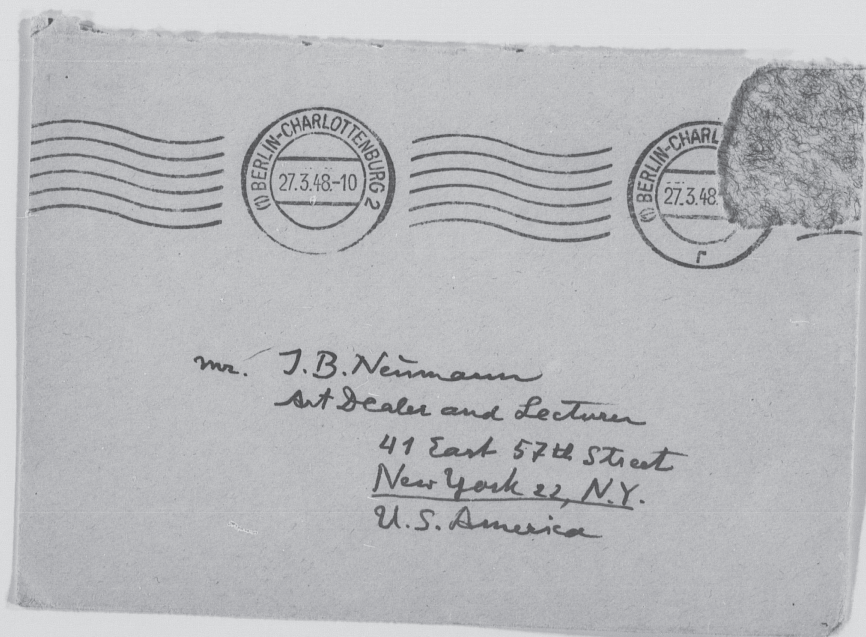 (1) BERLIN-CHARLOTTENBURG 2
27.3.48.-10
(1) BERLIN-CHARL
27.3.48.
r
Mr. J.B. Neumann
Art Dealer and Lecturer
41 East 57th Street
New York 22, N.Y.
U.S. America